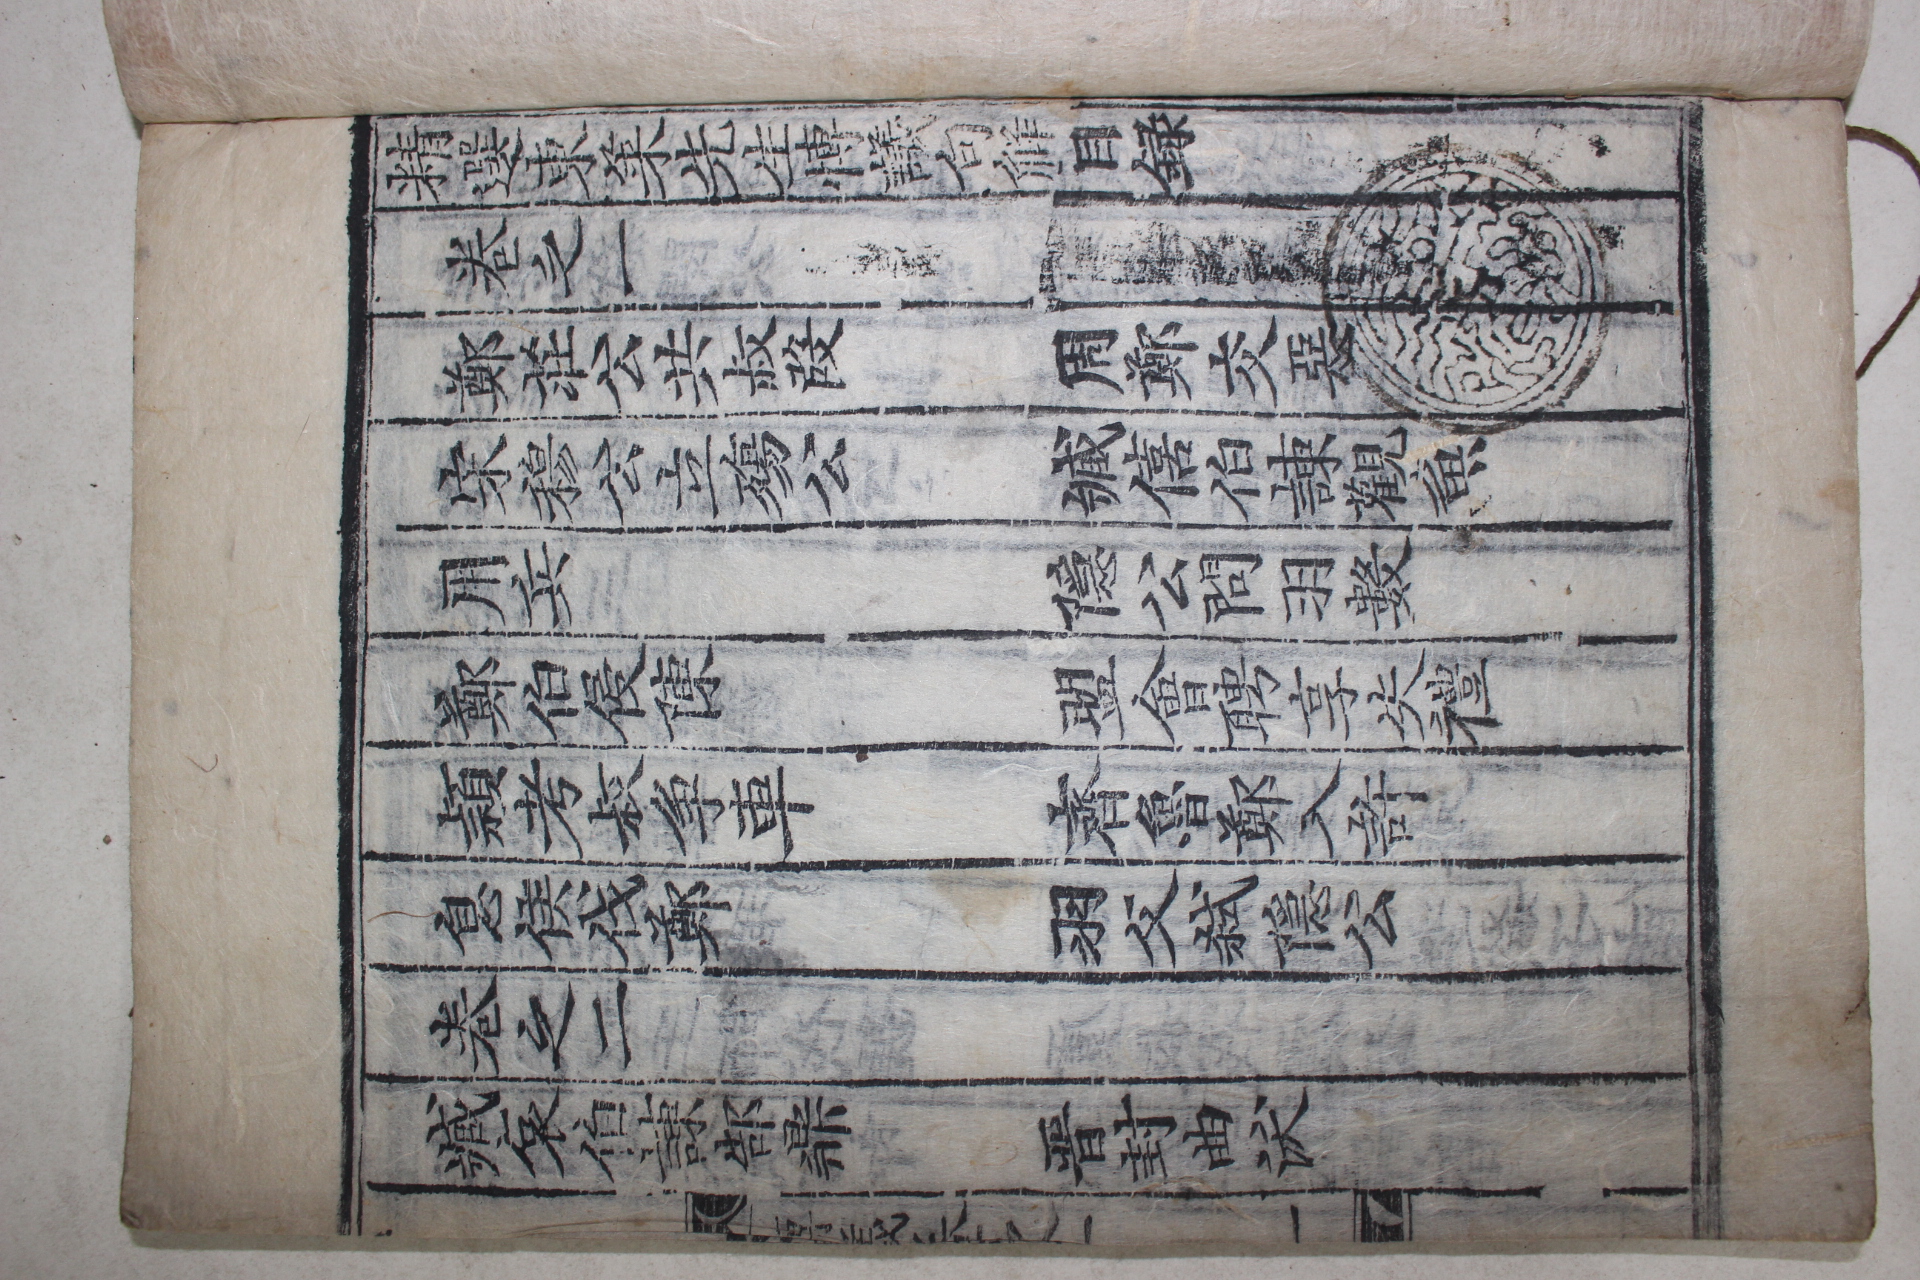 精選東萊先生博議句解目録
卷之一
鄭莊公共叔段 周鄭交惡
宋穆公立殤公 臧僖伯諫觀魚
用兵 隱公問羽數
鄭伯侵陳 盟會聘享失禮
潁考叔爭車 齊魯鄭入許
息侯伐鄭 羽父弑隱公
卷之二
臧哀伯諫郜鼎 晋封曲沃
博議卷之一 一